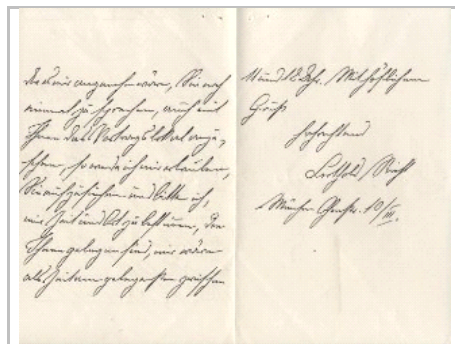 Da es mir angenehm wäre, Sie noch
einmal zu sprechen, auch mit
Ihnen das Vortragslokal anzu-
sehen, so werde ich mir erlauben,
Sie aufzusuchen und bitte ich,
mir Zeit und Ort zu bestimmen, die
Ihnen gelegen sind, mir wäre
als Zeit am gelegensten zwischen
11 und 12 Uhr. Mit höflichem
Gruß
hochachtend
München 10/III.